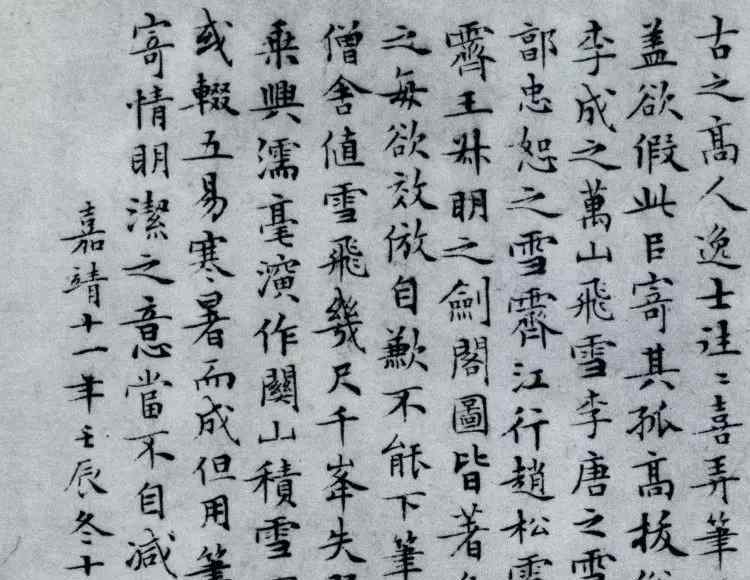 古之高人逸士往〻喜弄筆
蓋欲假此㠯寄其孤高拔
李成之萬山飛雪李唐之雪
郭忠恕之雪霽江行趙松雪
霽王叔明之劍閣圖皆著
之每欲效倣自歉不能下筆
僧舍值雪飛幾尺千峯失
乘興濡毫演作關山積雪
或輟五易寒暑而成但用筆
寄情明潔之意當不自減
嘉靖十一年壬辰冬十